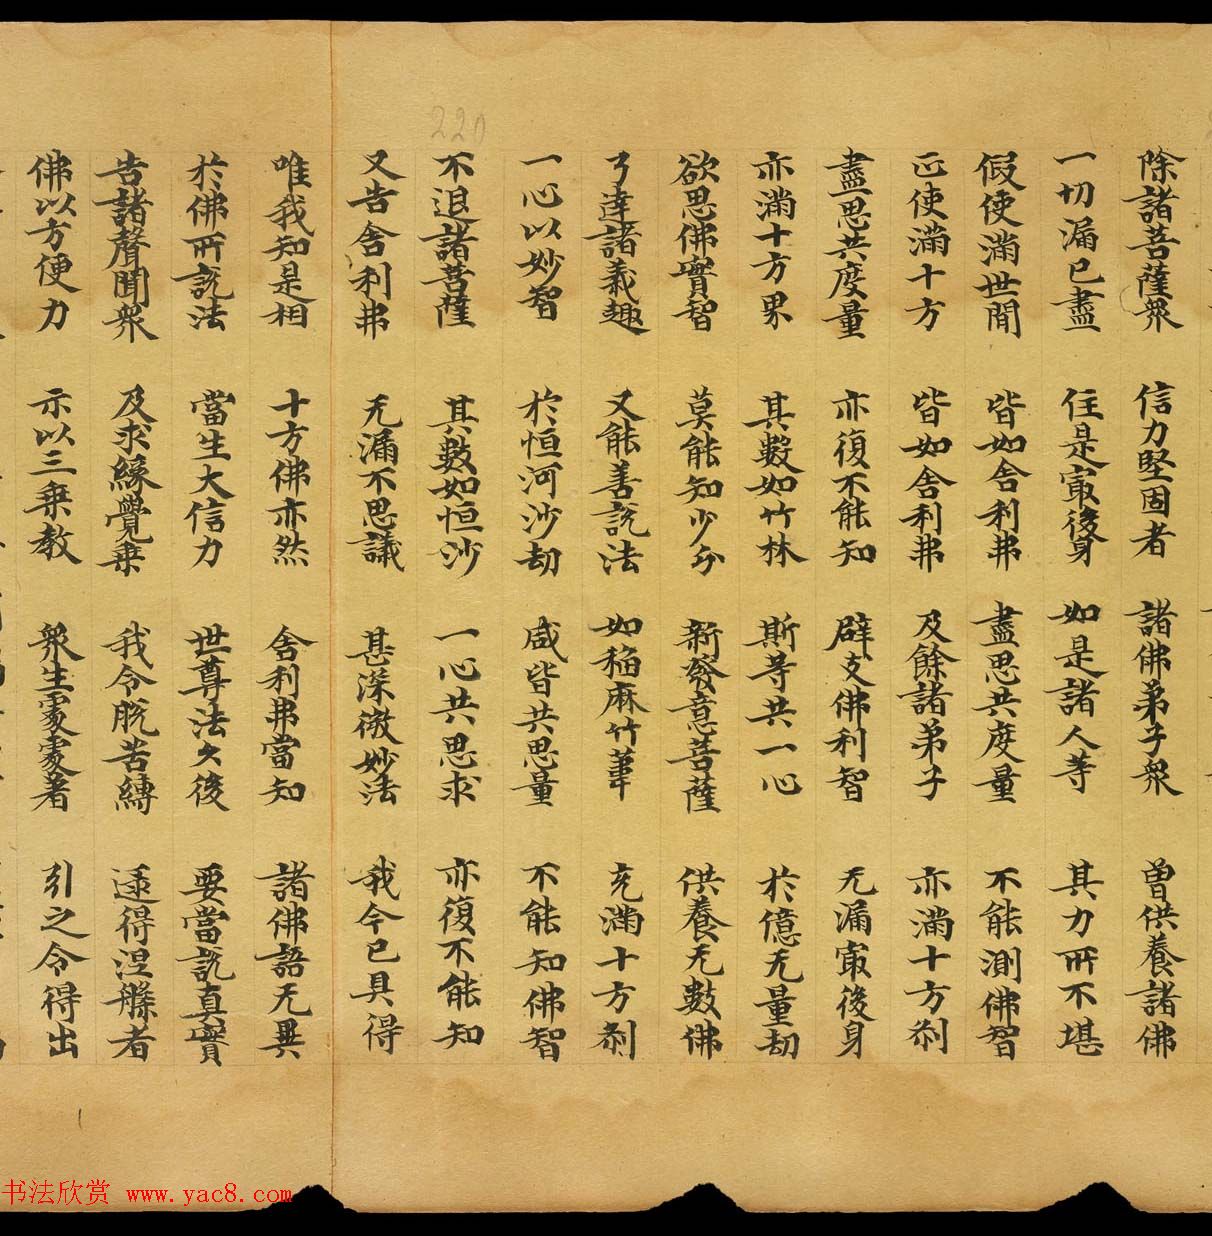 除諸菩薩衆 信力堅固者 諸佛弟子衆 曾供養諸佛
一切漏已盡 住是㝡後身 如是諸人等 其力所不堪
假使滿世間 皆如舍利弗 盡思共度量 不能測佛智
正使滿十方 皆如舍利弗 及餘諸弟子 亦滿十方刹
盡思共度量 亦復不能知 辟支佛利智 无漏㝡後身
亦滿十方界 其數如竹林 斯等共一心 於億无量劫
欲思佛實智 莫能知少分 新發意菩薩 供養无數佛
了達諸義趣 又能善説法 如稻麻竹葦 充滿十方刹
一心以妙智 於恒河沙劫 咸皆共思量 不能知佛智
不退諸菩薩 其數如恒沙 一心共思求 亦復不能知
又告舍利弗 无漏不思議 甚深微妙法 我今已具得
唯我知是相 十方佛亦然 舍利弗當知 諸佛語无異
於佛所説法 當生大信力 世尊法久後 要當説真實
告諸聲聞衆 及求緣覺乘 我令脫苦縛 逮得涅槃者
佛以方便力 示以三乘教 衆生處處著 引之令得出
220
书法欣赏 www.yac8.com